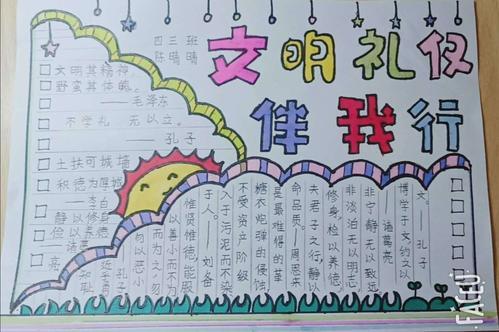 四三班
陈晴晴
文明礼仪
伴我行
文明其精神
野蛮其体魄。
——毛泽东
不学礼 无以立。
——孔子
土扶可城墙
积德为厚地
——李白
静以修身
俭以养德
——诸葛亮
知耻
近乎勇
孔子
勿以恶小
而为之,勿
以善小而不为
惟贤惟德能服
于人。——刘备
入于污泥而不染
不受资产阶级
糖衣炮弹的侵蚀
是最难得的革
命品质。——周恩来
夫君子之行,静以
修身,俭以养德,
非淡泊无以明志
非宁静无以致远
——诸葛亮
博学于文,约之以
文。——孔子
FACEU